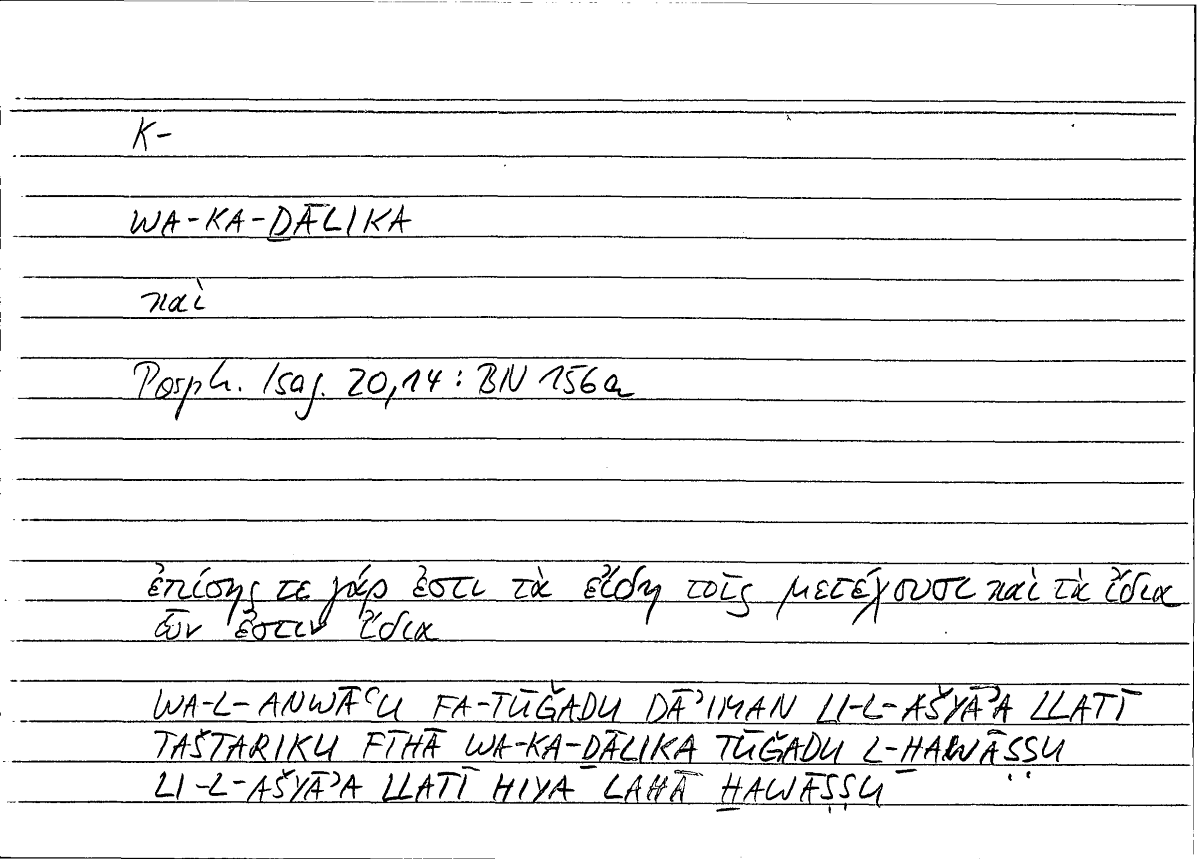 K-
WA-KA-ḎĀLIKA
καὶ
Porph. Isag. 20,14 : BN 156a
ἐπίσης τε γάρ ἐστι τὰ εἴδη τοῖς μετέχουσι καὶ τὰ ἴδια
ὧν ἐστιν ἴδια
WA-L-ANWĀʿU FA-TŪǦADU DĀʾIMAN LI-L-AŠYĀʾA LLATĪ
TAŠTARIKU FĪHĀ WA-KA-ḎĀLIKA TŪǦADU L-ḪAWĀṢṢU
LI-L-AŠYĀʾA LLATĪ HIYA LAHĀ ḪAWĀṢṢU